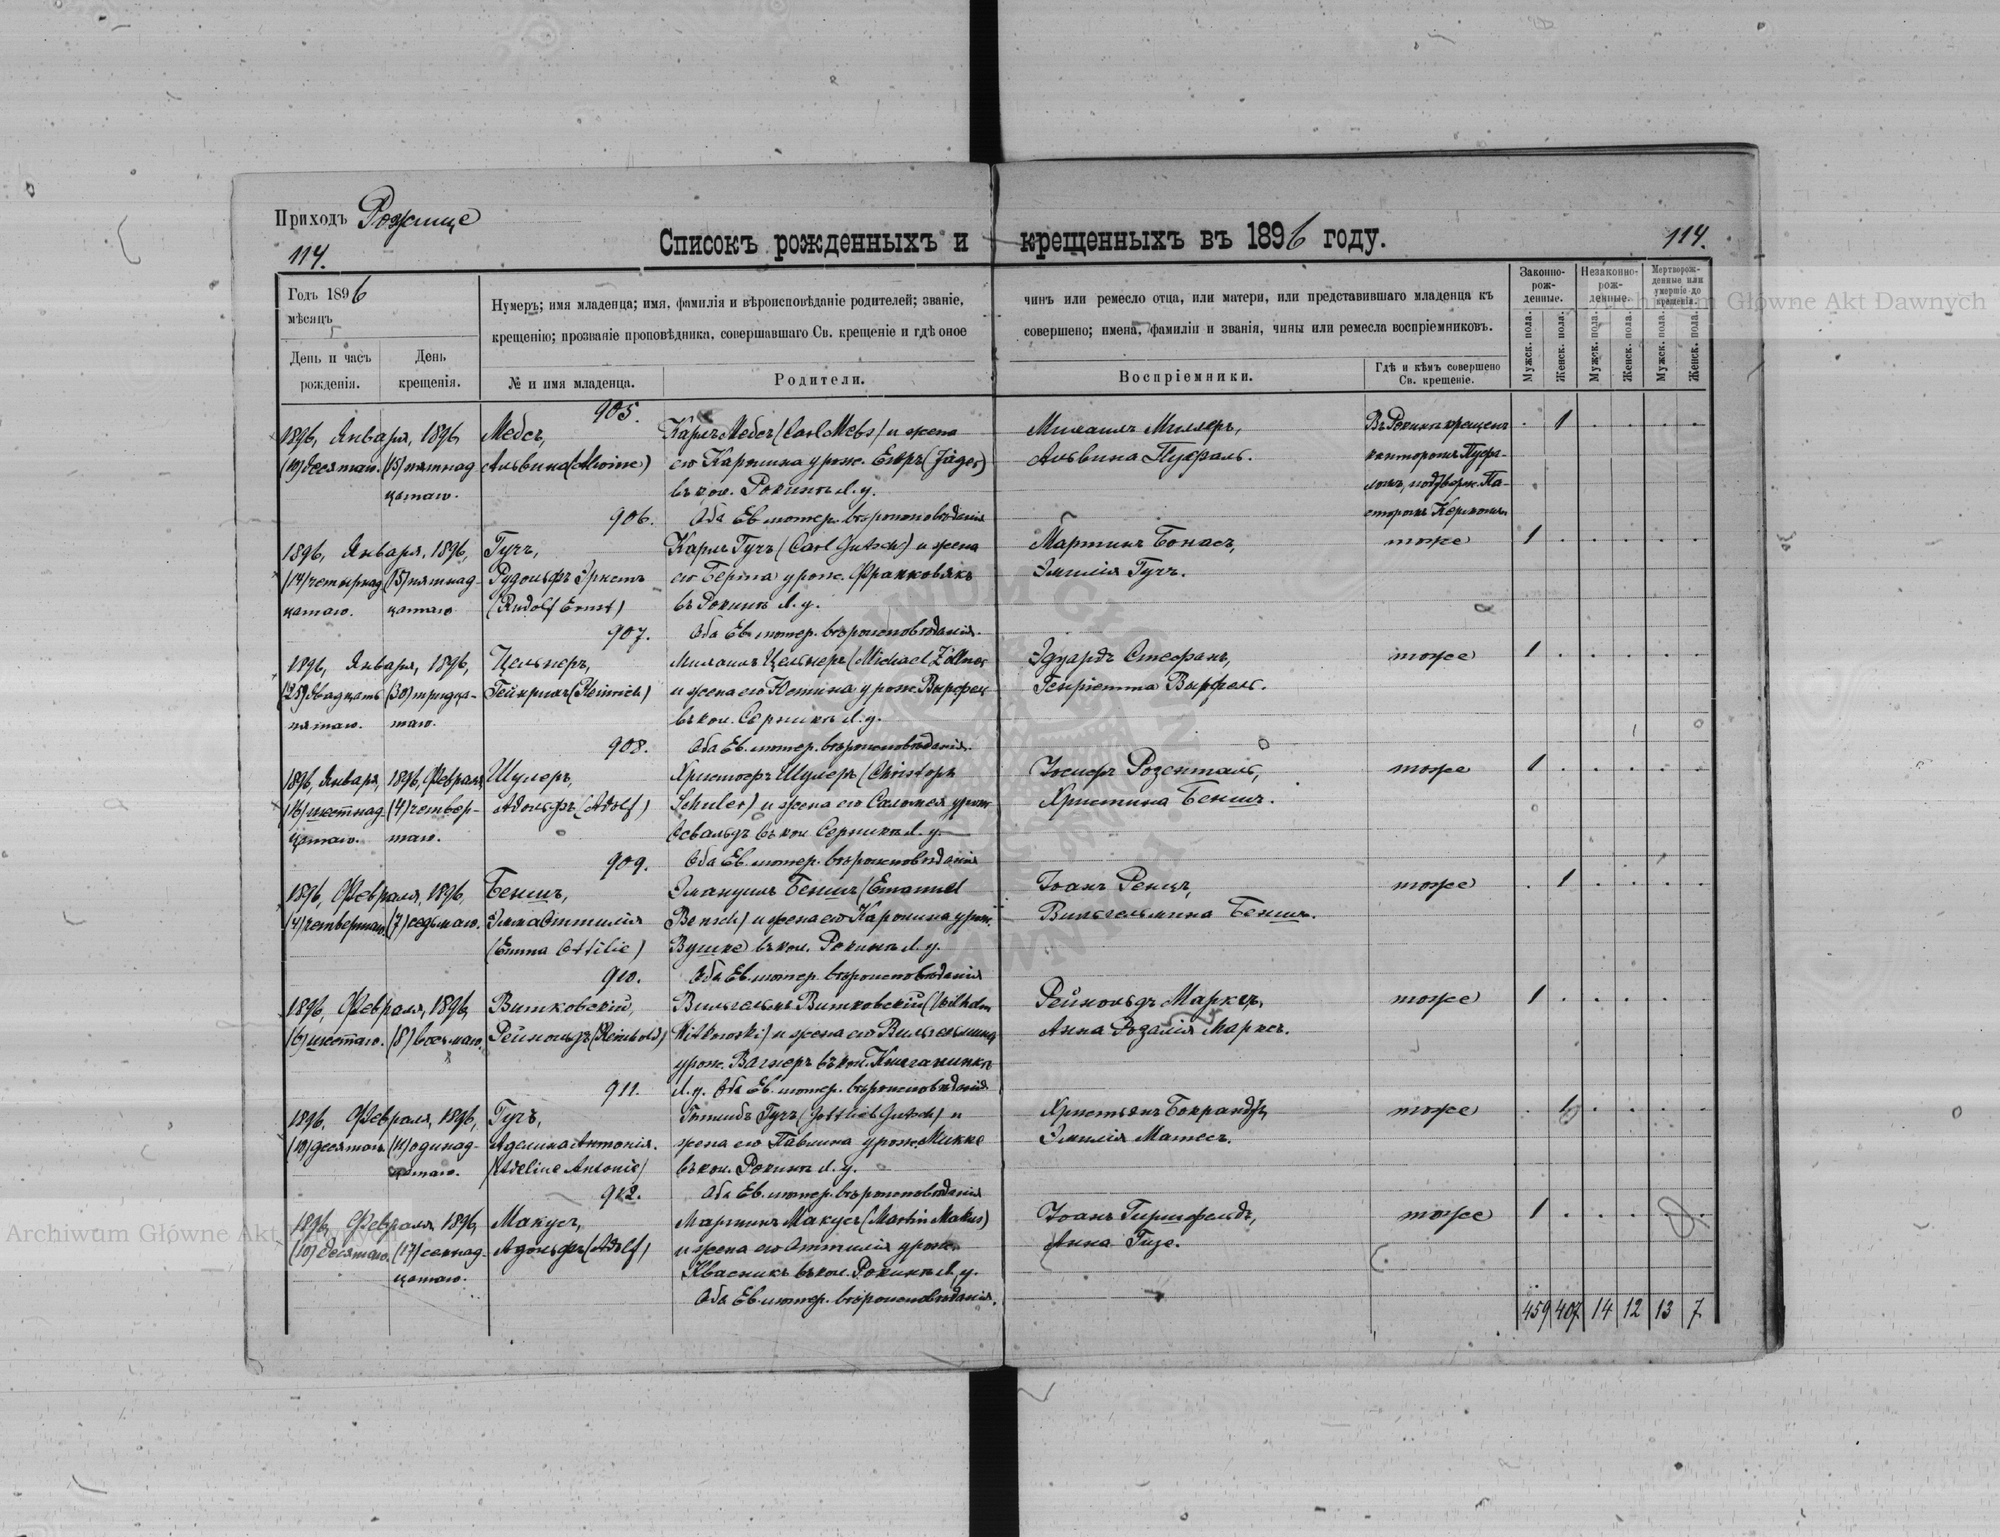 Приходъ Рожище
114.
Списокъ рожденныхъ и крещенныхъ въ 1896 году.
114.
Годъ 1896
мѣсяцъ
День и часъ рожденія.
День крещенія.
Нумеръ; имя младенца; имя, фамилія и вѣроисповѣданіе родителей; званіе,
крещенію; прозваніе проповѣдника, совершавшаго Св. крещеніе и гдѣ оное
№ и имя младенца.
Родители.
чинъ или ремесло отца, или матери, или представившаго младенца къ
совершено; имена, фамиліи и званія, чины или ремесла воспріемниковъ.
Воспріемники.
Гдѣ и кѣмъ совершено
Св. крещеніе.
Законно-
рож-
денные.
Незаконно-
рож-
денные.
Мертворож-
денные или
умершіе до
крещенія.
Мужск. пола.
Женск. пола.
Мужск. пола.
Женск. пола.
Мужск. пола.
Женск. пола.
905.
1896, Января, 1896, Мебсъ, Карлъ Мебсъ (Carl Mebs) и жена Михаилъ Миллеръ, 1
(10) десятаго. (15) пятнад- Альвина (Alwine) его Каролина урож. Егеръ (Jäger) Альвина Пуфаль.
цатаго. въ кол. Рокини Л. у.
906. Оба Ев. лютер. вѣроисповѣданія
1896, Января, 1896, Гучъ, Карлъ Гучъ (Carl Gutsch) и жена Мартинъ Бонасъ, тоже 1
(14) четырнад- (15) пятнад- Рудольфъ Эрнстъ его Берта урож. Франковякъ Эмилія Гучъ.
цатаго. цатаго (Rudolf Ernst) въ Рокини Л. у.
907. Оба Ев. лютер. вѣроисповѣданія.
1896, Января, 1896, Цельнеръ, Михаилъ Цельнеръ (Michael Zöllner Эдуардъ Стефанъ, тоже 1
(25) двадцать (30) тридца- Гейнрихъ (Heinrich) и жена его Юстина урож. Генріетта Варфель.
пятаго. таго. въ кол. Серники Л. у.
908. Оба Ев. лютер. вѣроисповѣданія.
1896, Января, 1896, Февраля, Шулеръ, Христофъ Шулеръ (Christoph Іосифъ Розенталь, тоже 1
(16) шестнад- (4) четвер- Адольфъ (Adolf) Schuler) и жена его Саломея урож. Христина Бенишъ.
цатаго. таго. Освальдъ въ кол Серники Л. у.
909. Оба Ев. лютер. вѣроисповѣданія
1896, Февраля, 1896, Бенишъ, Эмануилъ Бенишъ (Emanuel Іоанъ Ренцъ, тоже 1
(4) четвертаго. (7) седьмаго. Эмма Оттилія Benisch) и жена его Каролина урож. Вильгельмина Бенишъ.
(Emma Ottilie) въ кол. Рокини Л. у.
910. Оба Ев. лютер. вѣроисповѣданія
1896, Февраля, 1896, Витковскій, Вильгельмъ Витковскій (Wilhelm Рейнольдъ Марксъ, тоже 1
(6) шестаго. (8) восьмаго. Рейнольдъ (Reinhold) Witkowski) и жена его Вильгельмина Анна Розалія Марксъ.
урож. Вагнеръ въ кол. Княгининки
911. Л. у. Оба Ев. лютер. вѣроисповѣданія
1896, Февраля, 1896, Гучъ, Готлибъ Гучъ (Gottlieb Gutsch) и Христьянъ тоже 1
(10) десятаго. (11) одинад- Аделина Антонія. жена его Павлина урож. Микке Эмилія Матесъ.
цатаго. (Adeline Antonie) въ кол. Рокини Л. у.
912. Оба Ев. лютер. вѣроисповѣданія
1896, Февраля, 1896, Макусъ, Мартинъ Макусъ (Martin Makus) Іоанъ Гиршфельдъ, тоже 1
(10) десятаго. (17) семнад- Адольфъ (Adolf) и жена его Оттилія урож. Анна Гизе.
цатаго. Квасникъ въ кол. Рокини Л. у.
Оба Ев. лютер. вѣроисповѣданія.
459 407 14 12 13 7
Archiwum Główne Akt Dawnych
Archiwum Główne Akt Dawnych